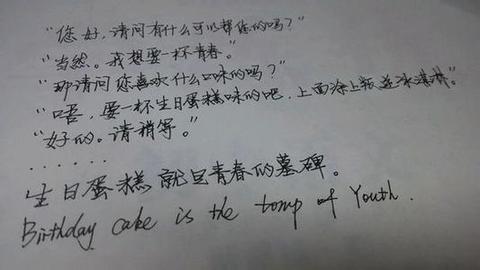 “您好，请问有什么可以帮您的吗？”
“当然。我想要一杯青春。”
“那请问您喜欢什么口味的吗？”
“唔，要一杯生日蛋糕味的吧，上面涂上 冰淇淋。”
“好的。请稍等。”
······
生日蛋糕就是青春的墓碑。
Birthday cake is the tomp of Youth.